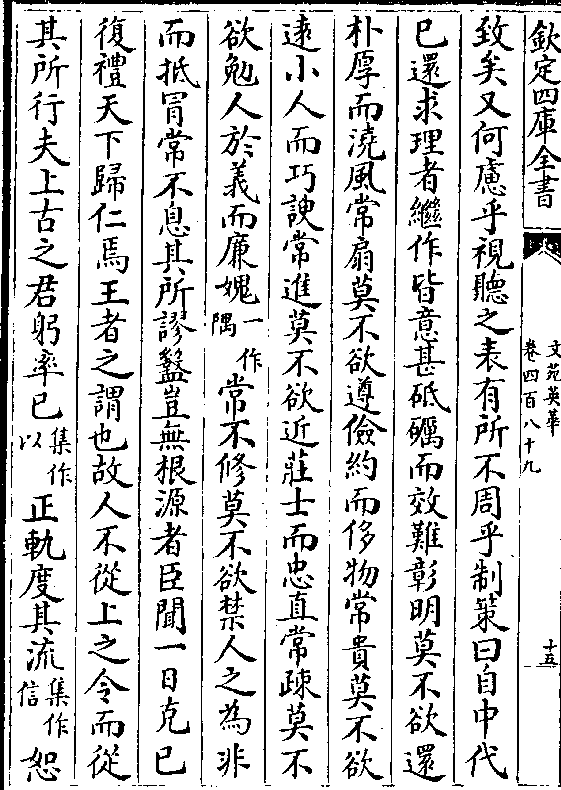 欽定四庫全書
文苑英華
卷四百八十九
十五
致矣又何慮乎視聽之表有所不周乎制策曰自中代
已還求理者繼作皆意甚砥礪而效難彰明莫不欲還
朴厚而澆風常扇莫不欲遵儉約而侈物常貴莫不欲
遠小人而巧諛常進莫不欲近莊士而忠直常疎莫不
欲勉人於義而廉媿一作隅常不修莫不欲禁人之為非
而抵冒常不息其所謬盭豈無根源者臣聞一日克已
復禮天下歸仁焉王者之謂也故人不從上之令而從
其所行夫上古之君躬率已集作以正軌度其流集作信恕